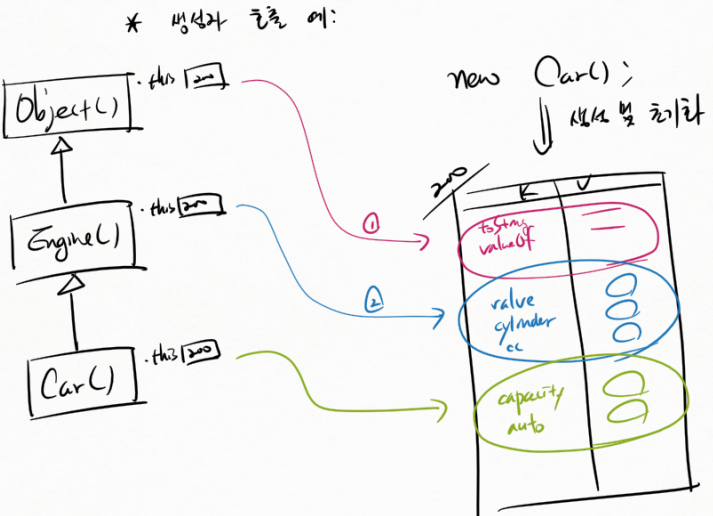 * 생성자 호출 예:
Object()
.this 200
new Car();
생성 및 초기화
200
K V
Engine()
.this 200
①
toString
valueOf
②
valve
cylinder
cc
Car()
.this 200
capacity
auto